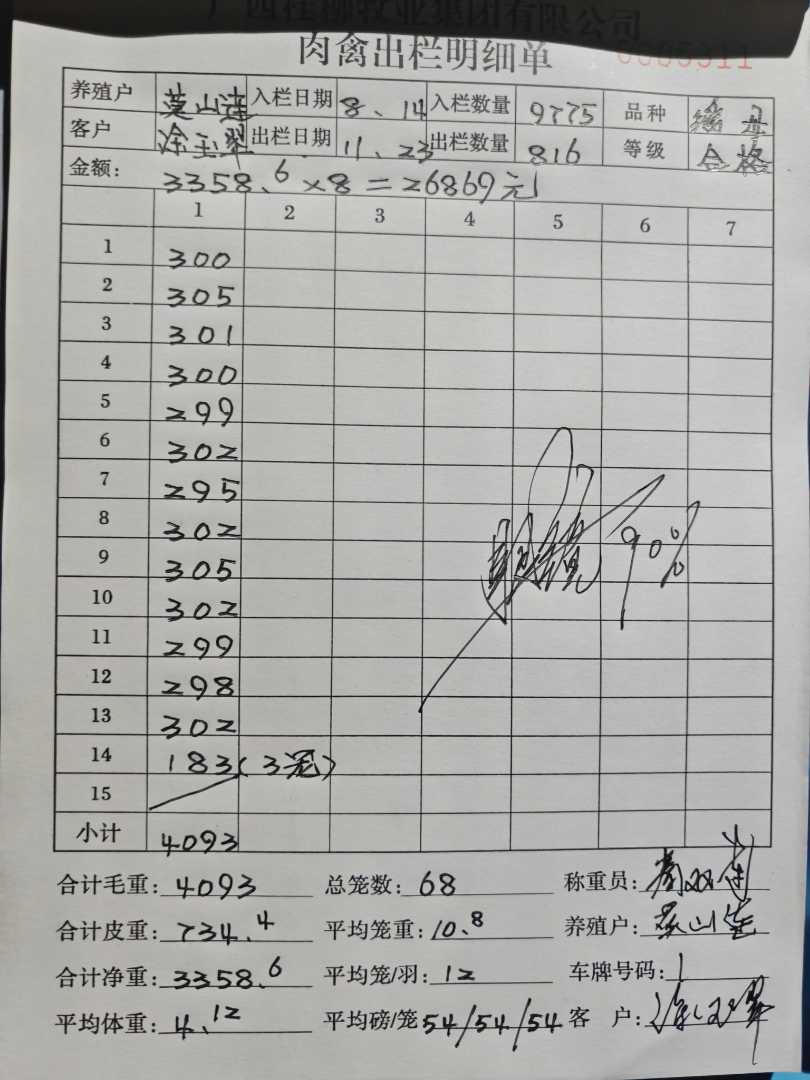 广西桂柳牧业集团有限公司
肉禽出栏明细单
养殖户 莫山连 入栏日期 8、14 入栏数量 9775 品种
客户 涂玉翠 出栏日期 11、23 出栏数量 816 等级 合格
金额: 3358.6×8=26869元
1 2 3 4 5 6 7
1 300
2 305
3 301
4 300
5 299
6 302
7 295
8 302
9 305
10 302
11 299
12 298
13 302
14 183(3笼)
15
90%
小计 4093
合计毛重: 4093 总笼数: 68 称重员:
合计皮重: 734.4 平均笼重: 10.8 养殖户: 莫山连
合计净重: 3358.6 平均笼/羽: 12 车牌号码: 1
平均体重: 4.12 平均磅/笼 54/54/54 客 户: